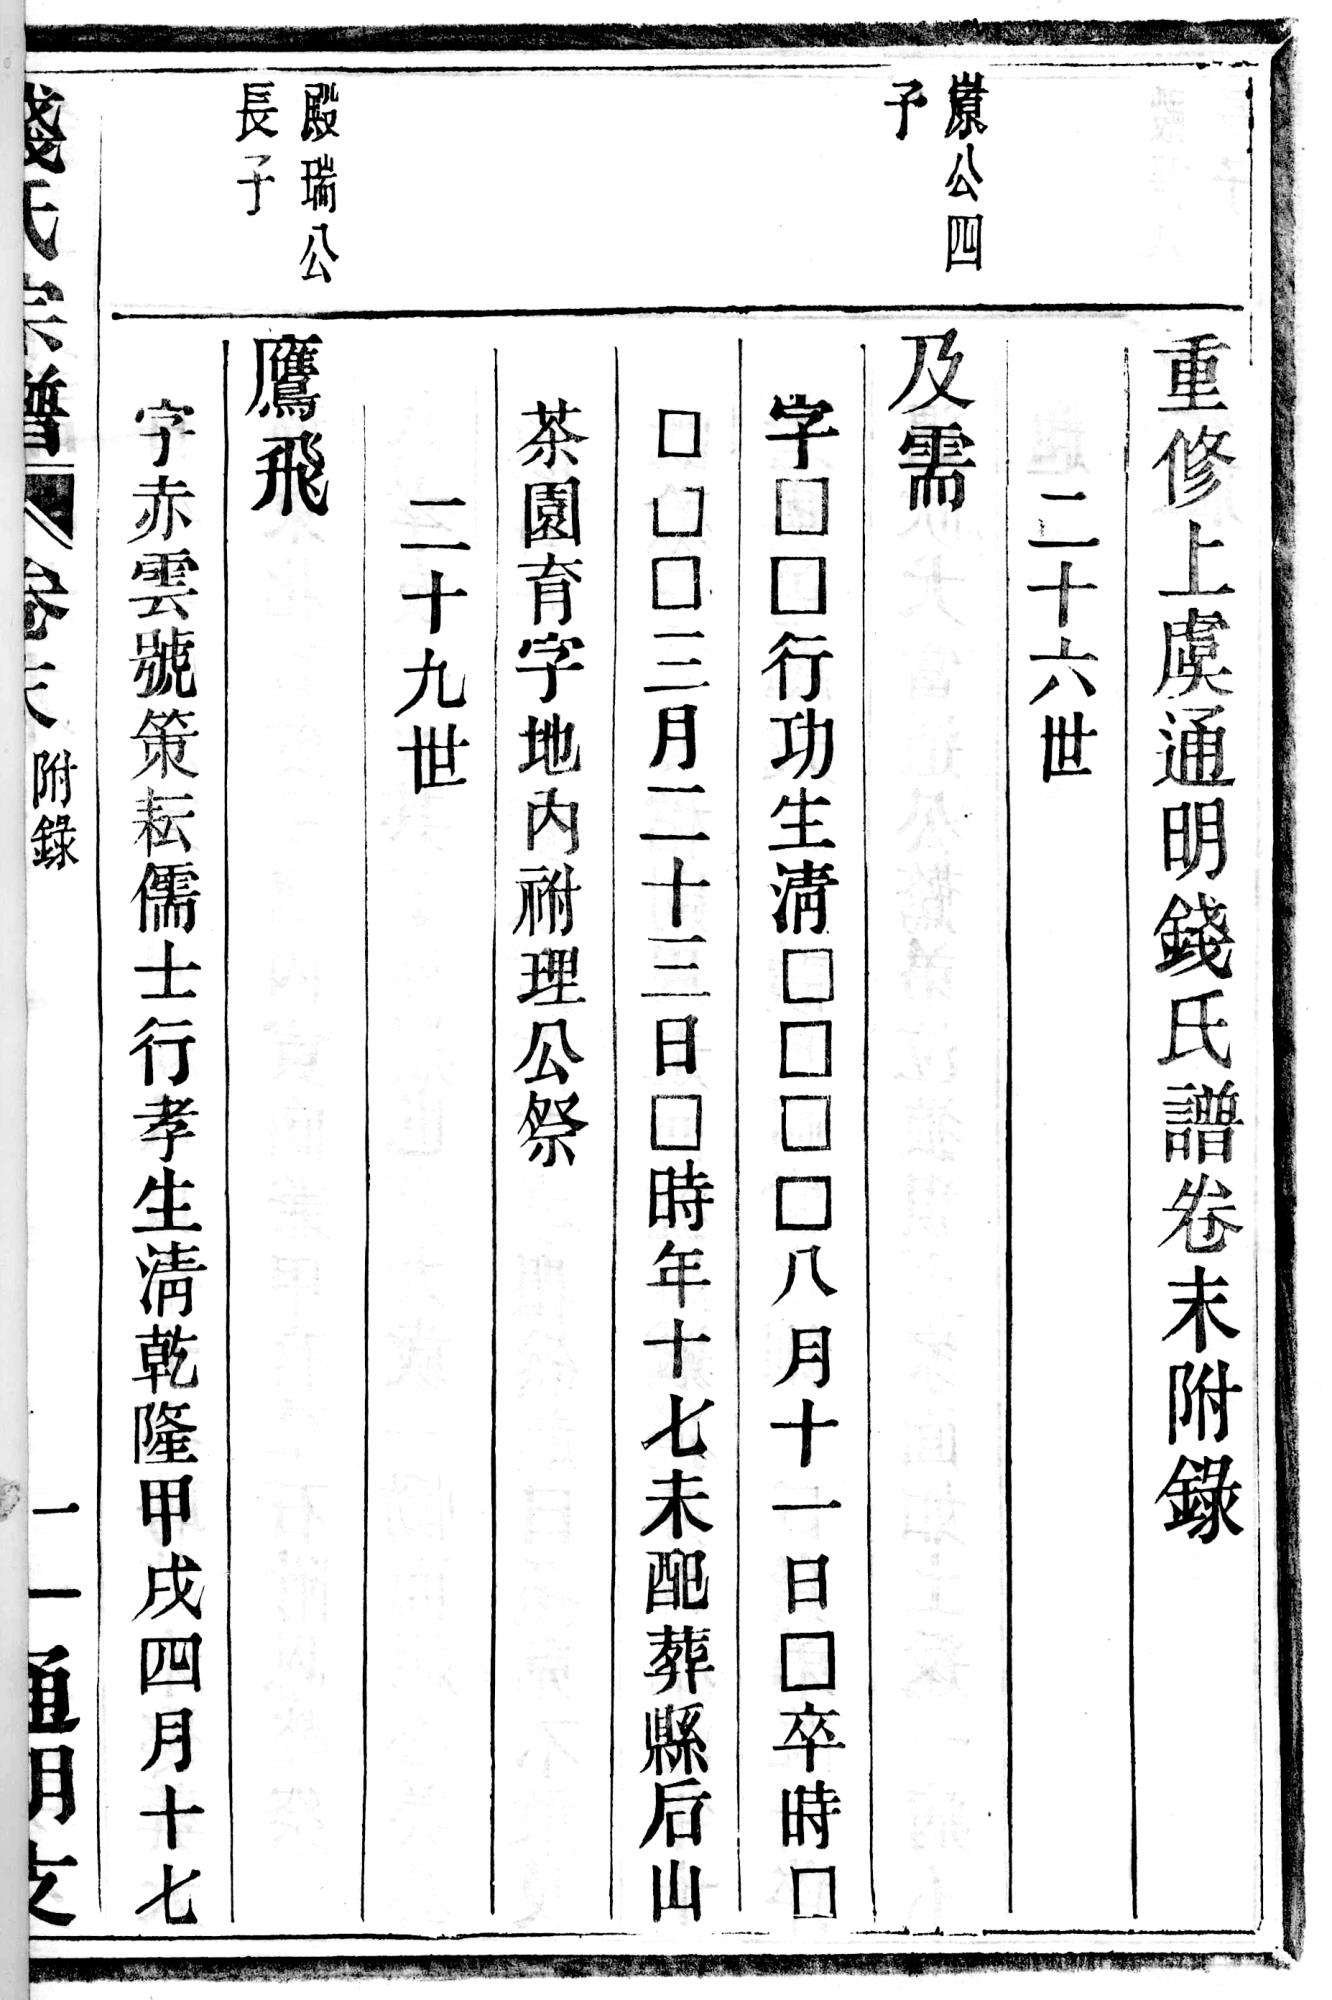 重修上虞通明錢氏譜卷末附錄
二十六世
𡼏公四
子
及需
字□□行功生淸□□□□八月十一日□卒時□
□□□三月二十三日□時年十七未配葬縣后山
茶園育字地內祔理公祭
二十九世
殿瑞公
長子
鷹飛
字赤雲號策耘儒士行孝生淸乾隆甲戌四月十七
錢氏宗譜 卷末 附錄 一 一 通明支